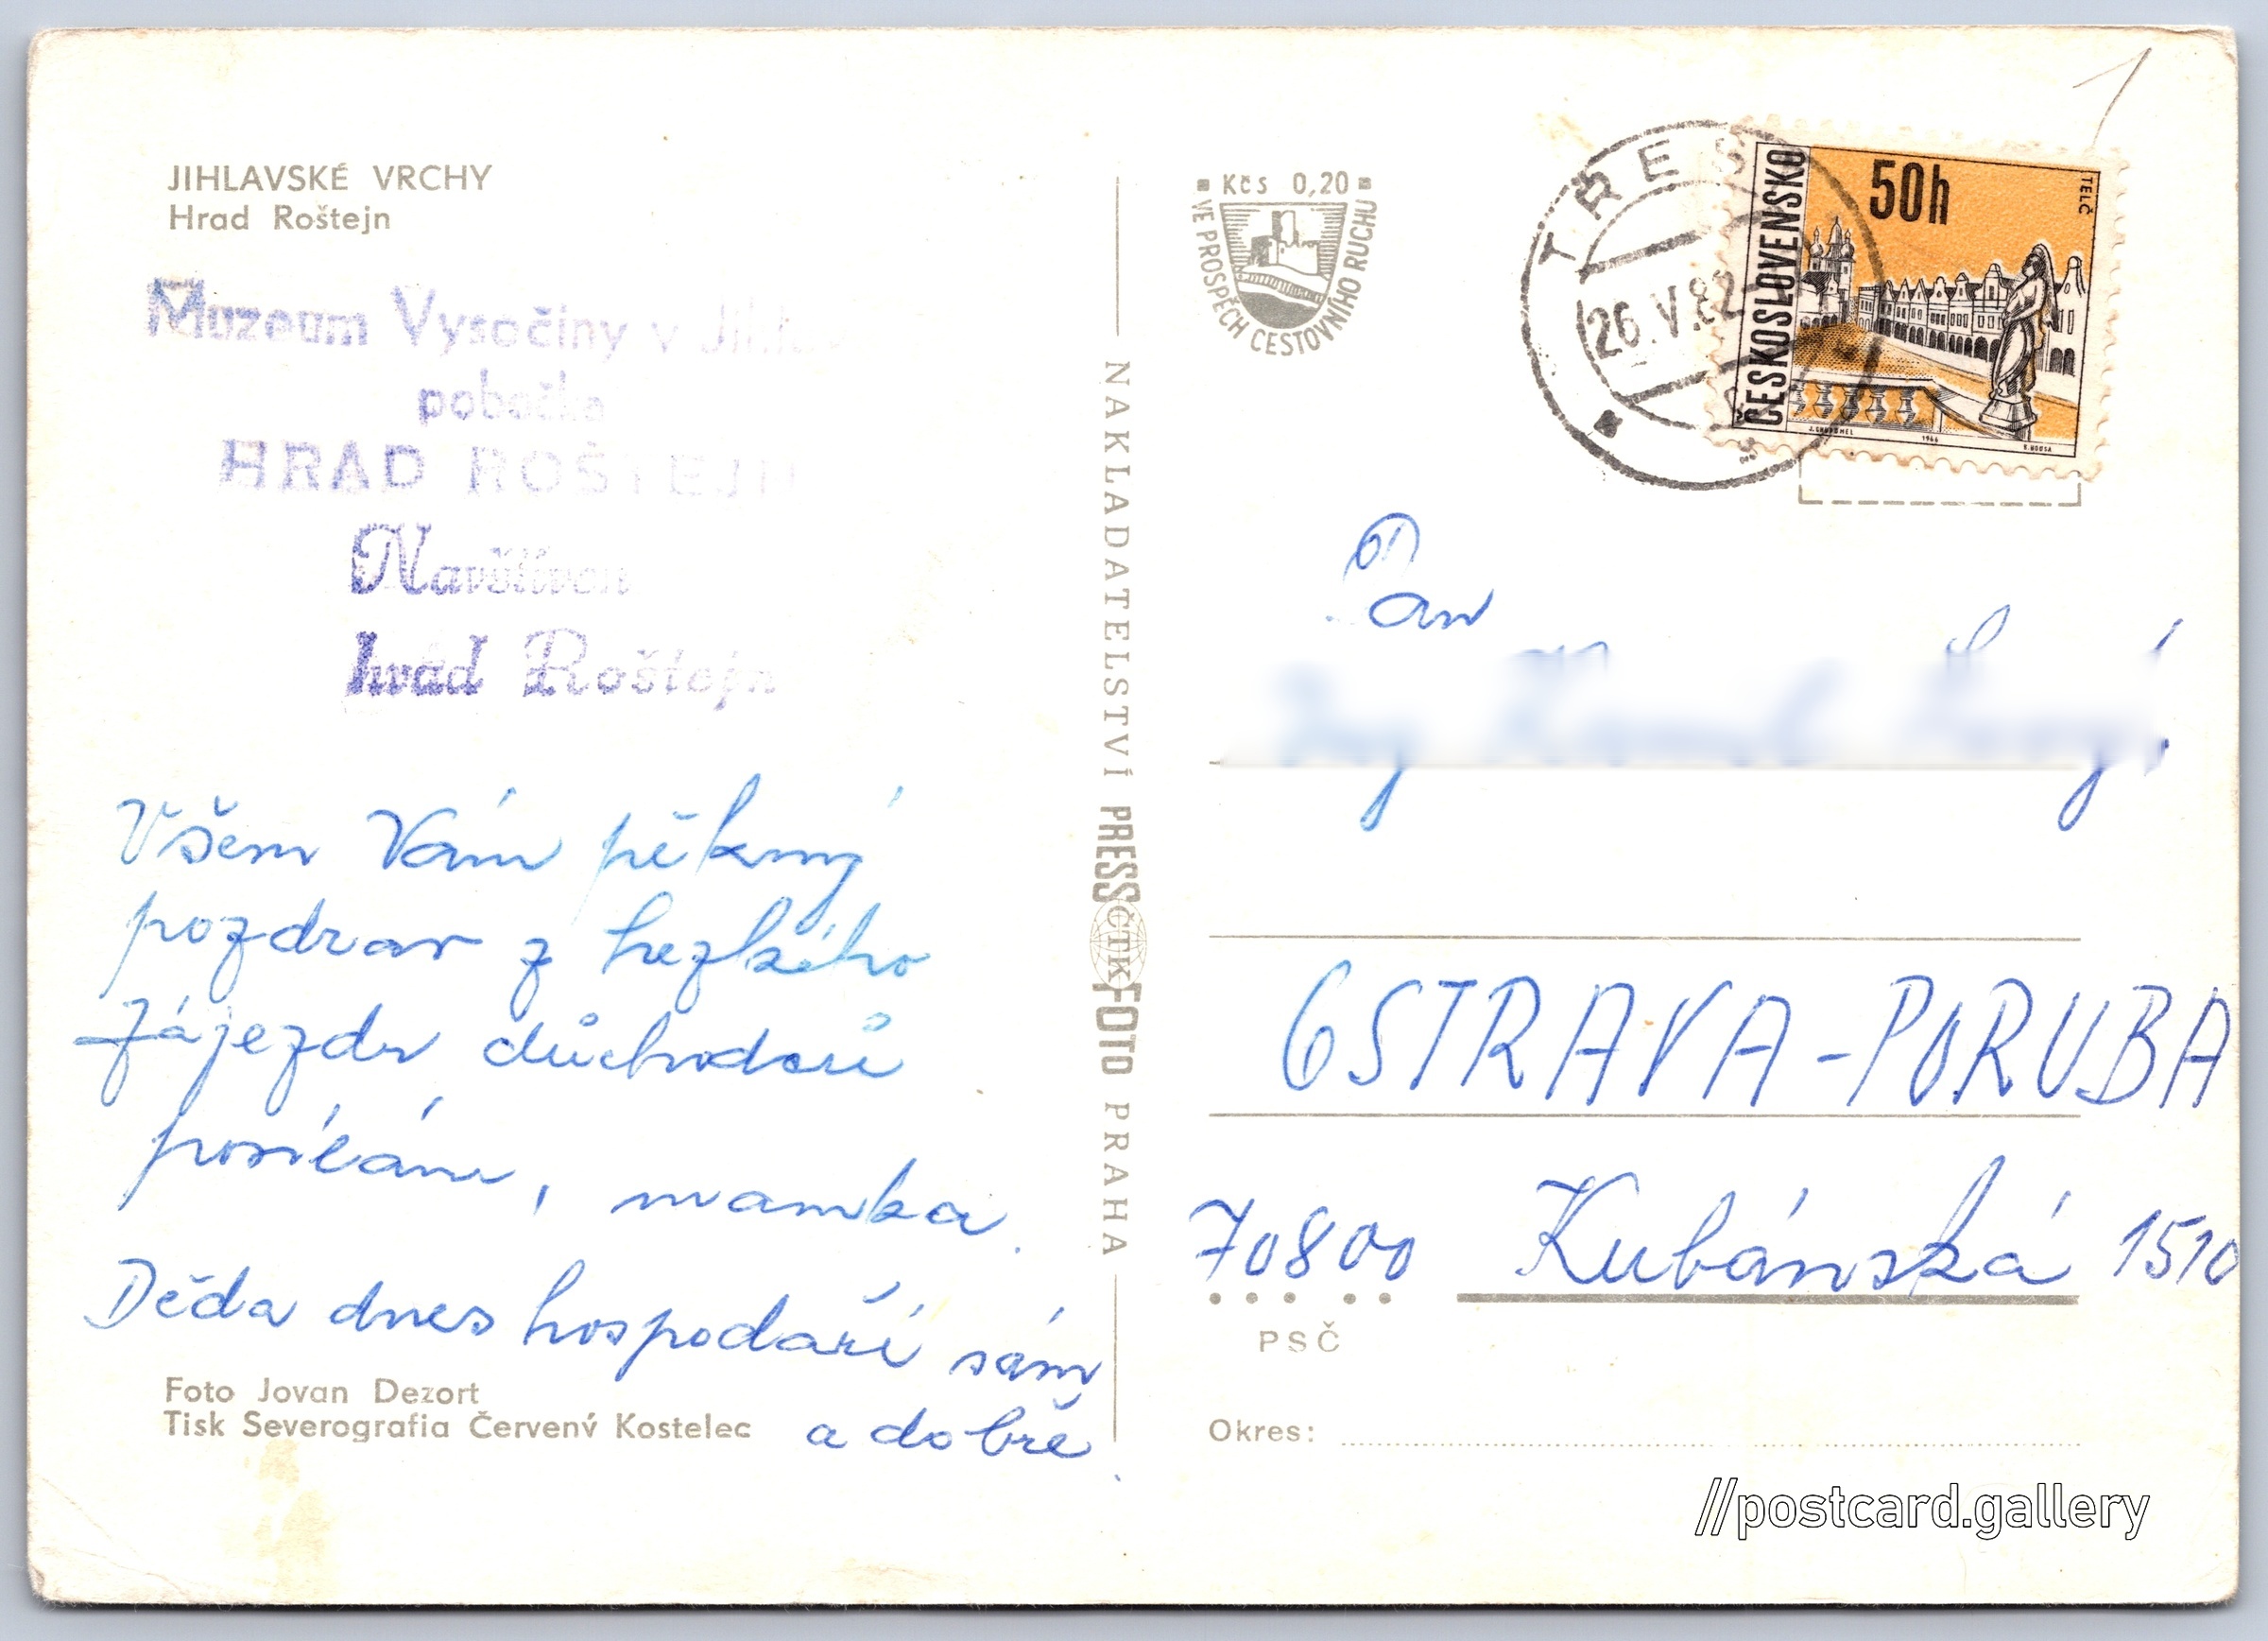 JIHLAVSKÉ VRCHY
Hrad Roštejn
Muzeum Vysočiny v Jihlavě
pobočka
HRAD ROŠTEJN
Navštivte
hrad Roštejn
Všem Vám pěkný
pozdrav z hezkého
zájezdu důchodců
posílám, mamka.
Děda dnes hospodaří sám
a dobře.
Foto Jovan Dezort
Tisk Severografia Červený Kostelec
NAKLADATELSTVÍ PRESSFOTO PRAHA
ČTK
Kčs 0,20
VE PROSPĚCH CESTOVNÍHO RUCHU
TŘEŠ
26.V.82
ČESKOSLOVENSKO
50h
TELČ
1966
Pan
OSTRAVA-PORUBA
70800 Kubánská 1510
PSČ
Okres:
//postcard.gallery